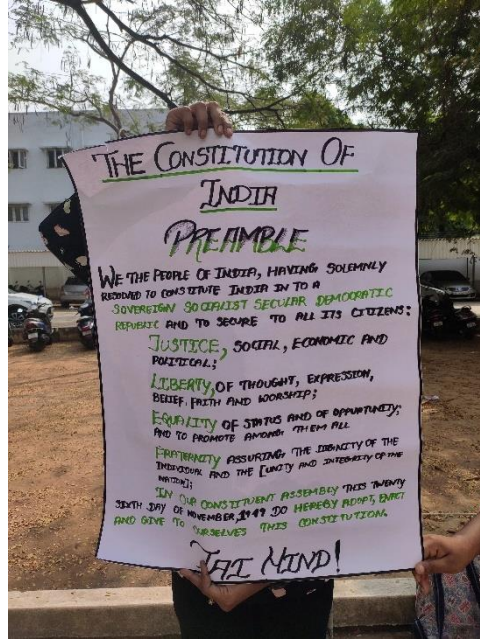 THE CONSTITUTION OF
INDIA
PREAMBLE
WE THE PEOPLE OF INDIA, HAVING SOLEMNLY
RESOLVED TO CONSTITUTE INDIA IN TO A
SOVEREIGN SOCIALIST SECULAR DEMOCRATIC
REPUBLIC AND TO SECURE TO ALL ITS CITIZENS;
JUSTICE, SOCIAL, ECONOMIC AND
POLITICAL;
LIBERTY, OF THOUGHT, EXPRESSION,
BELIEF, FAITH AND WORSHIP;
EQUALITY OF STATUS AND OF OPPORTUNITY;
AND TO PROMOTE AMONG THEM ALL
FRATERNITY ASSURING THE DIGNITY OF THE
INDIVIDUAL AND THE [UNITY AND INTEGRITY OF THE
NATION];
IN OUR CONSTITUENT ASSEMBLY THIS TWENTY
SIXTH DAY OF NOVEMBER, 1949 DO HEREBY ADOPT, ENACT
AND GIVE TO OURSELVES THIS CONSTITUTION.
JAI HIND!